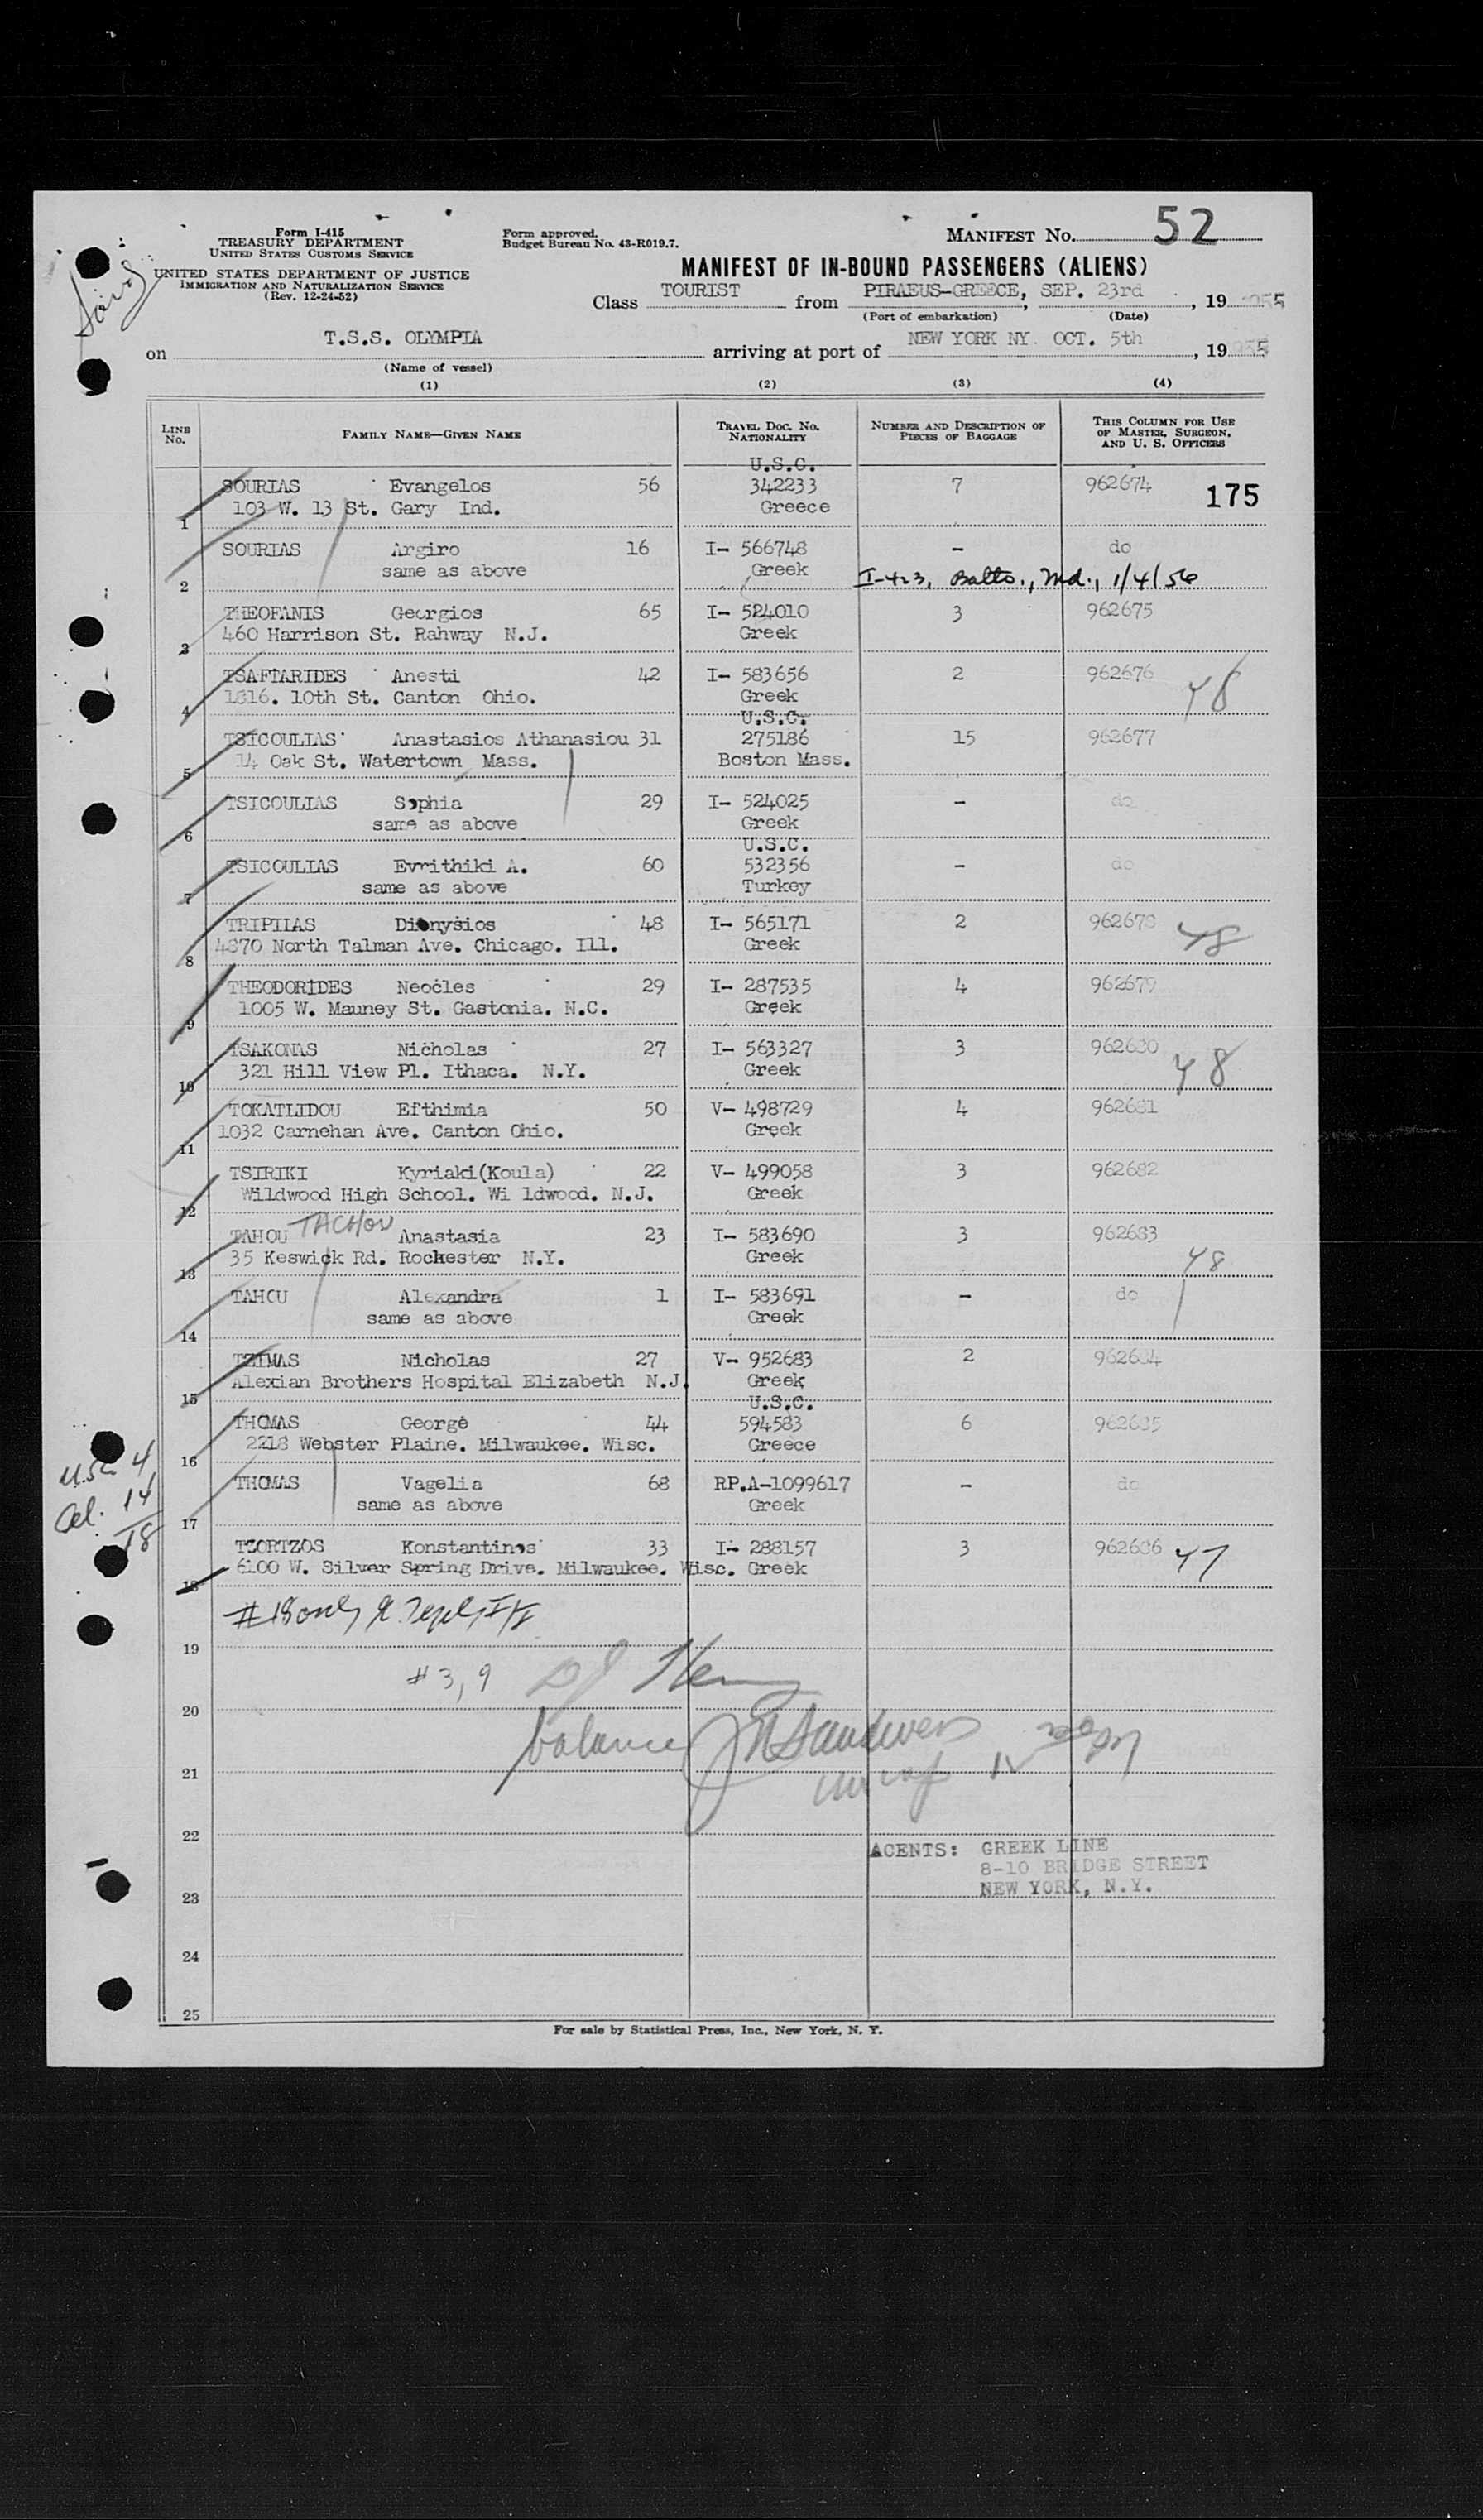 Form I-415
TREASURY DEPARTMENT
UNITED STATES CUSTOMS SERVICE
UNITED STATES DEPARTMENT OF JUSTICE
IMMIGRATION AND NATURALIZATION SERVICE
(Rev. 12-24-52)
Form approved.
Budget Bureau No. 43-R019.7.
MANIFEST No. 52
MANIFEST OF IN-BOUND PASSENGERS (ALIENS)
Class TOURIST from PIRAEUS-GREECE, SEP. 23rd, 19 1955
(Port of embarkation) (Date)
on T.S.S. OLYMPIA arriving at port of NEW YORK NY. OCT. 5th, 19 955
(Name of vessel)
(1) (2) (3) (4)
LINE No. FAMILY NAME—GIVEN NAME TRAVEL DOC. No. NATIONALITY NUMBER AND DESCRIPTION OF PIECES OF BAGGAGE THIS COLUMN FOR USE OF MASTER, SURGEON, AND U. S. OFFICERS
U.S.C.
SOURIAS Evangelos 56 342233 7 962674 175
1 103 W. 13 St. Gary Ind. Greece
SOURIAS Argiro 16 I- 566748 - do
2 same as above Greek I-423, Balto., Md., 1/4/56
THEOFANIS Georgios 65 I- 524010 3 962675
3 460 Harrison St. Rahway N.J. Greek
TSAFTARIDES Anesti 42 I- 583656 2 962676 48
4 1816. 10th St. Canton Ohio. Greek
U.S.C.
TSICOULIAS Anastasios Athanasiou 31 275186 15 962677
5 14 Oak St. Watertown Mass. Boston Mass.
TSICOULIAS Sophia 29 I- 524025 - do
6 same as above Greek
U.S.C.
TSICOULIAS Evrithiki A. 60 532356 - do
7 same as above Turkey
TRIPILAS Dionysios 48 I- 565171 2 962678 48
8 4870 North Talman Ave. Chicago. Ill. Greek
THEODORIDES Neocles 29 I- 287535 4 962679
9 1005 W. Mauney St. Gastonia. N.C. Greek
TSAKONAS Nicholas 27 I- 563327 3 962680 48
10 321 Hill View Pl. Ithaca. N.Y. Greek
TOKATLIDOU Efthimia 50 V- 498729 4 962681
11 1032 Carnehan Ave. Canton Ohio. Greek
TSIRIKI Kyriaki(Koula) 22 V- 499058 3 962682
12 Wildwood High School. Wi ldwood. N.J. Greek
TAHOU TACHOU Anastasia 23 I- 583690 3 962683
13 35 Keswick Rd. Rochester N.Y. Greek 48
TAHOU Alexandra 1 I- 583691 - do
14 same as above Greek
TZIMAS Nicholas 27 V- 952683 2 962684
15 Alexian Brothers Hospital Elizabeth N.J. Greek
U.S.C.
THOMAS George 44 594583 6 962685
16 2218 Webster Plaine. Milwaukee. Wisc. Greece
THOMAS Vagelia 68 RP.A-1099617 - do
17 same as above Greek
TSORTZOS Konstantinos 33 I- 288157 3 962686 47
18 6100 W. Silver Spring Drive. Milwaukee. Wisc. Greek
USC 4
Al. 14
18
19
# 3, 9
20
balance
21
22
AGENTS: GREEK LINE
8-10 BRIDGE STREET
23 NEW YORK, N.Y.
24
25
For sale by Statistical Press, Inc., New York, N. Y.